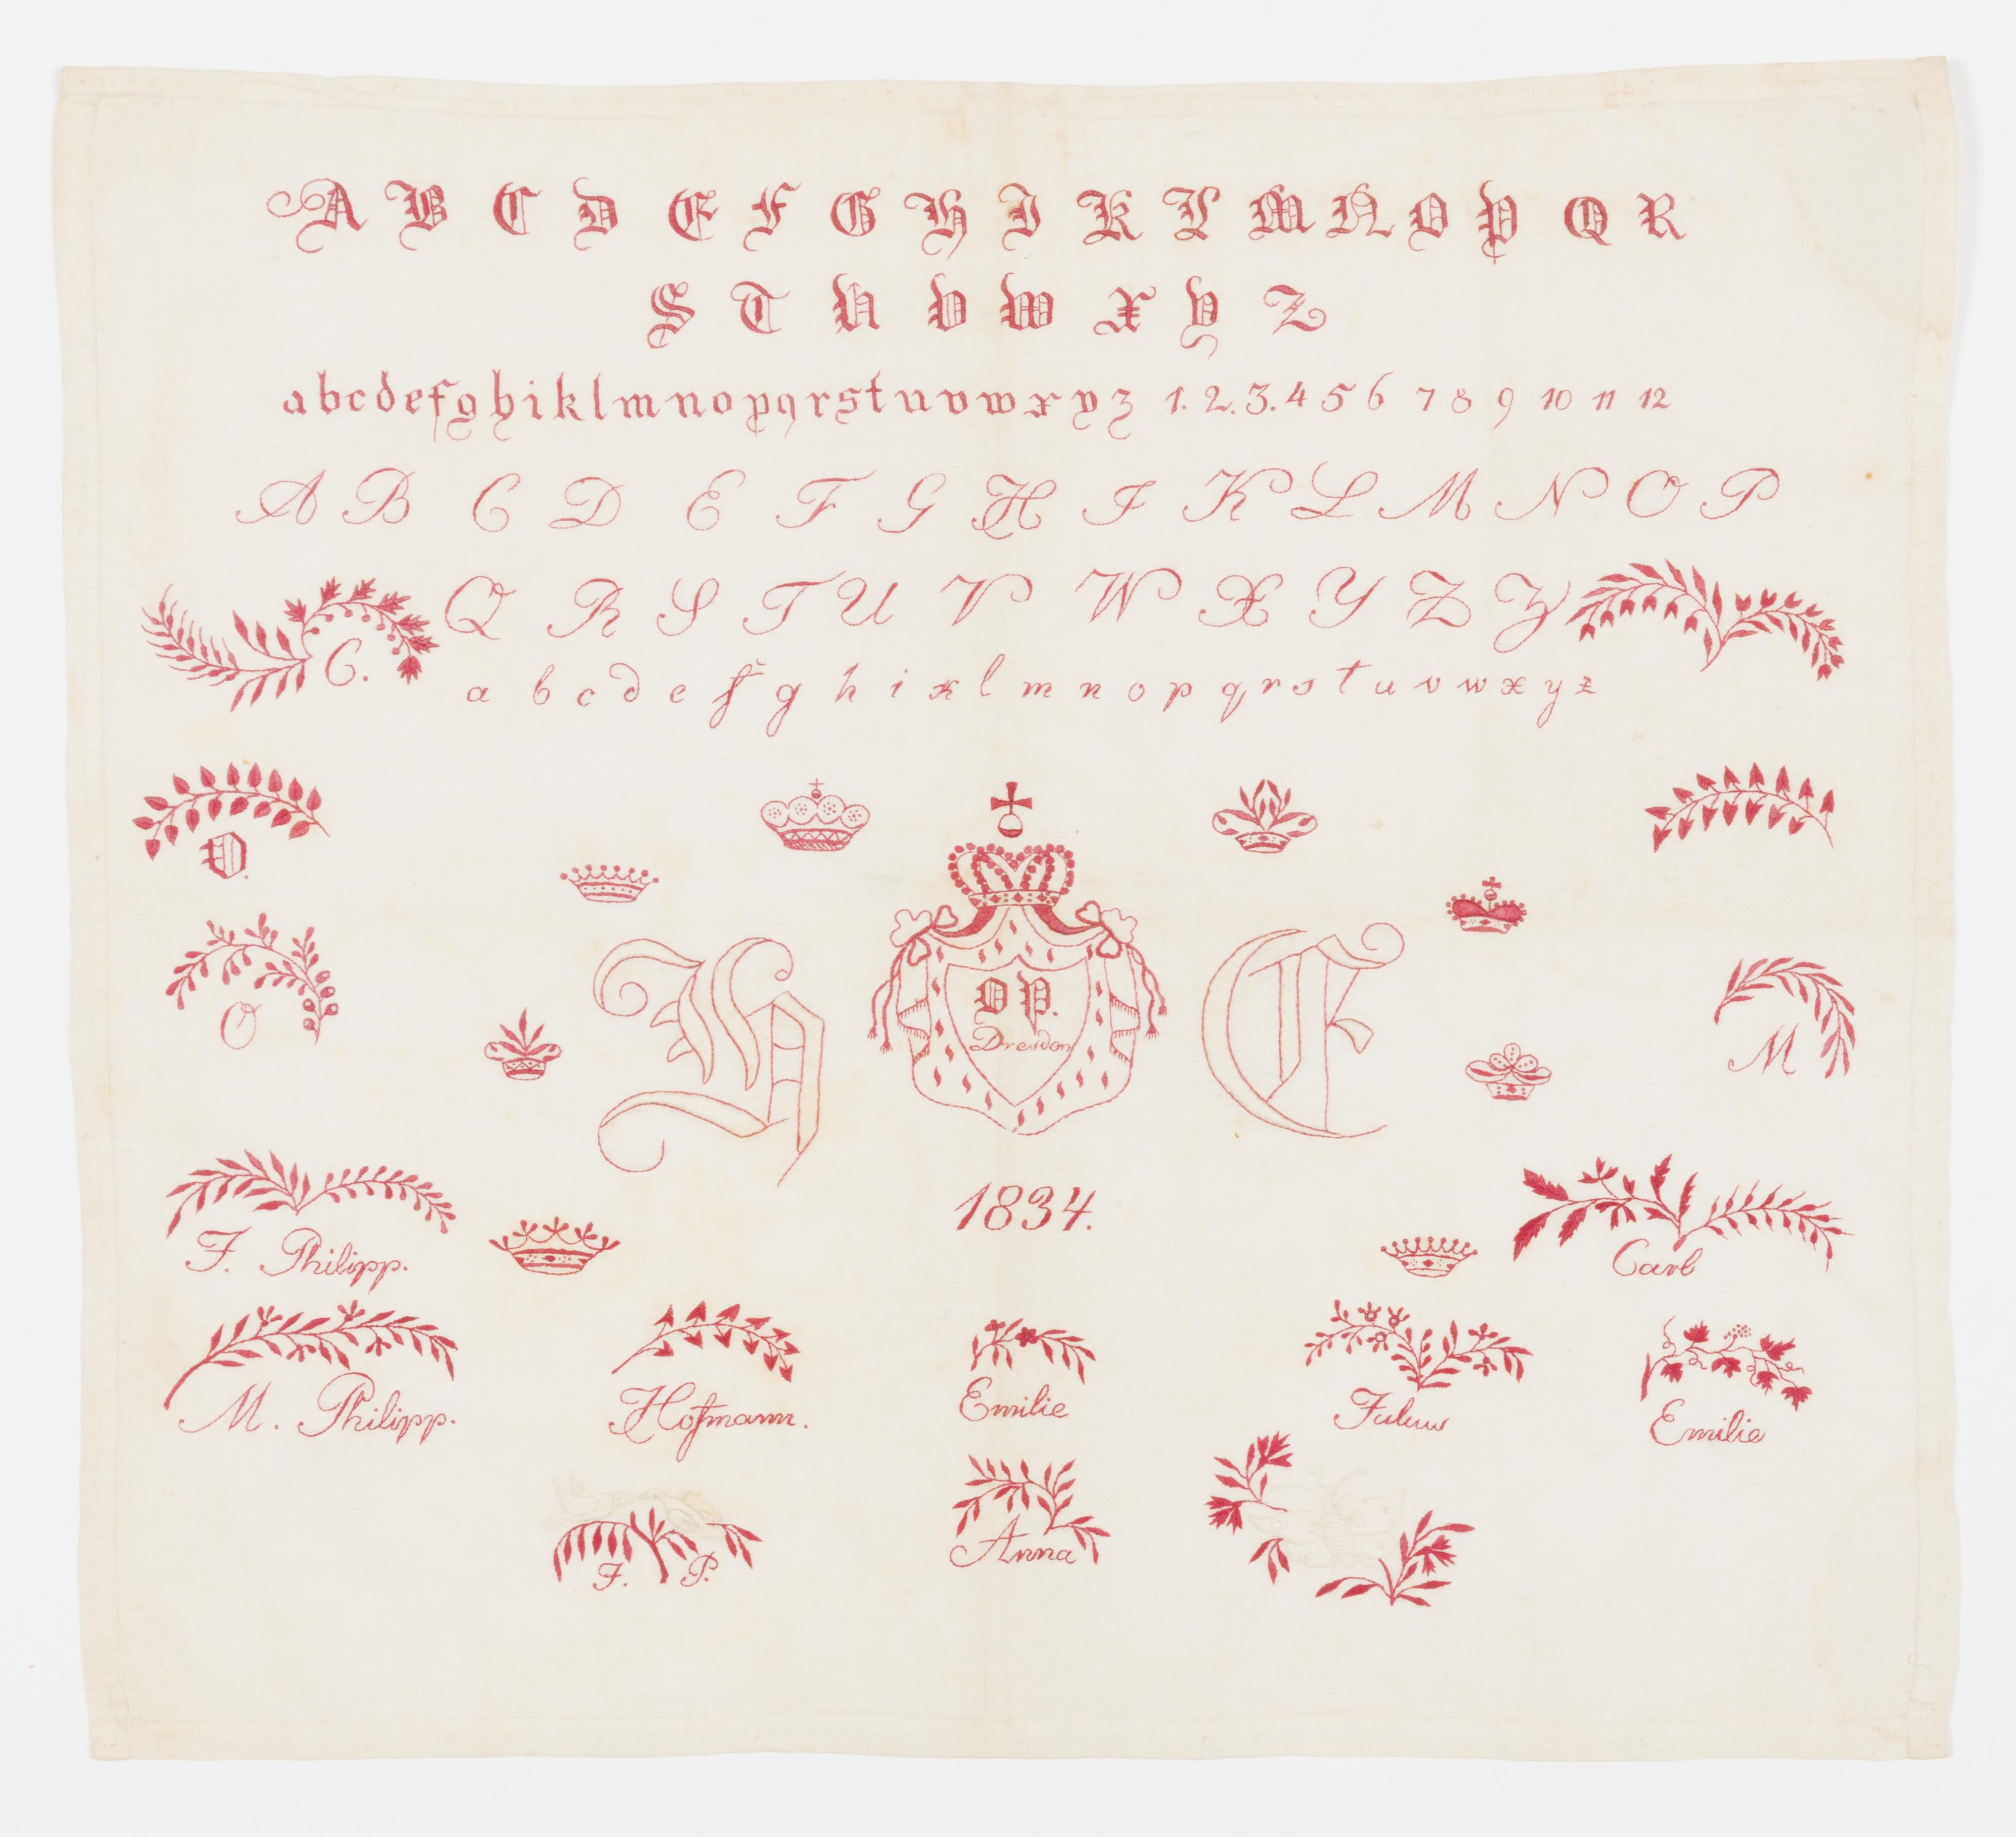 A B C D E F G H I K L M N O P Q R
S T U V W X Y Z
abcdefghiklmnopqrstuvwxyz 1. 2. 3. 4 5 6 7 8 9 10 11 12
A B C D E F G H I K L M N O P
Q R S T U V W X Y Z Z
C.
a b c d e f g h i k l m n o p q r s t u v w x y z
O.
O
H
O P.
Dresden
E
M
1834.
F. Philipp.
Carl
M. Philipp.
Hofmann.
Emilie
Emilie
F. P.
Anna